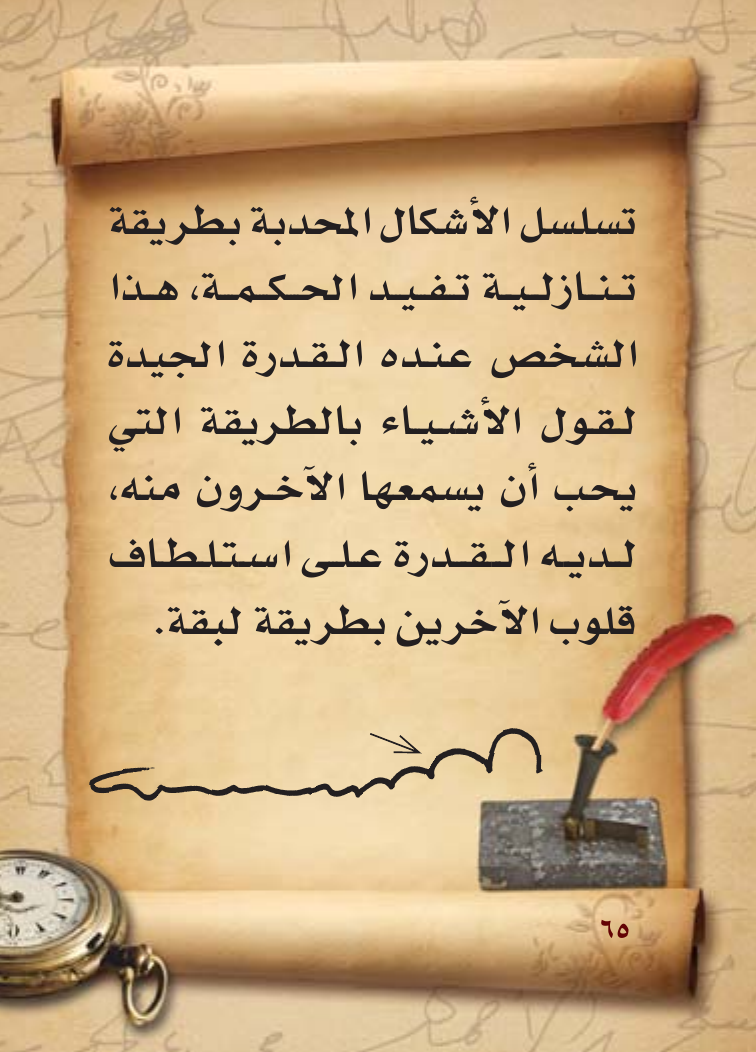 تسلسل الأشكال المحدبة بطريقة
تنازلية تفيد الحكمة، هذا
الشخص عنده القدرة الجيدة
لقول الأشياء بالطريقة التي
يحب أن يسمعها الآخرون منه،
لديه القدرة على استلطاف
قلوب الآخرين بطريقة لبقة.
٦٥